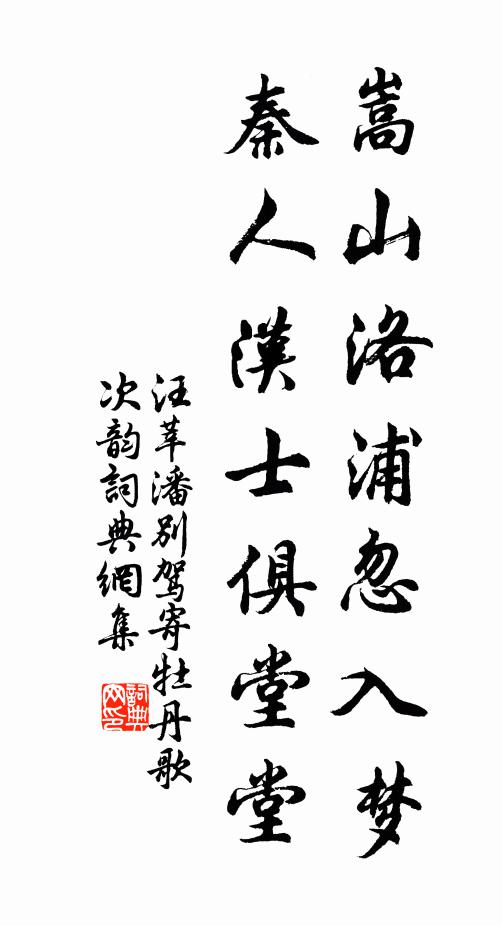 嵩山洛浦忽入梦
秦人漢士俱堂堂
汪莘潘别駕寄牡丹歌
次韵詞典網集
詞典网印